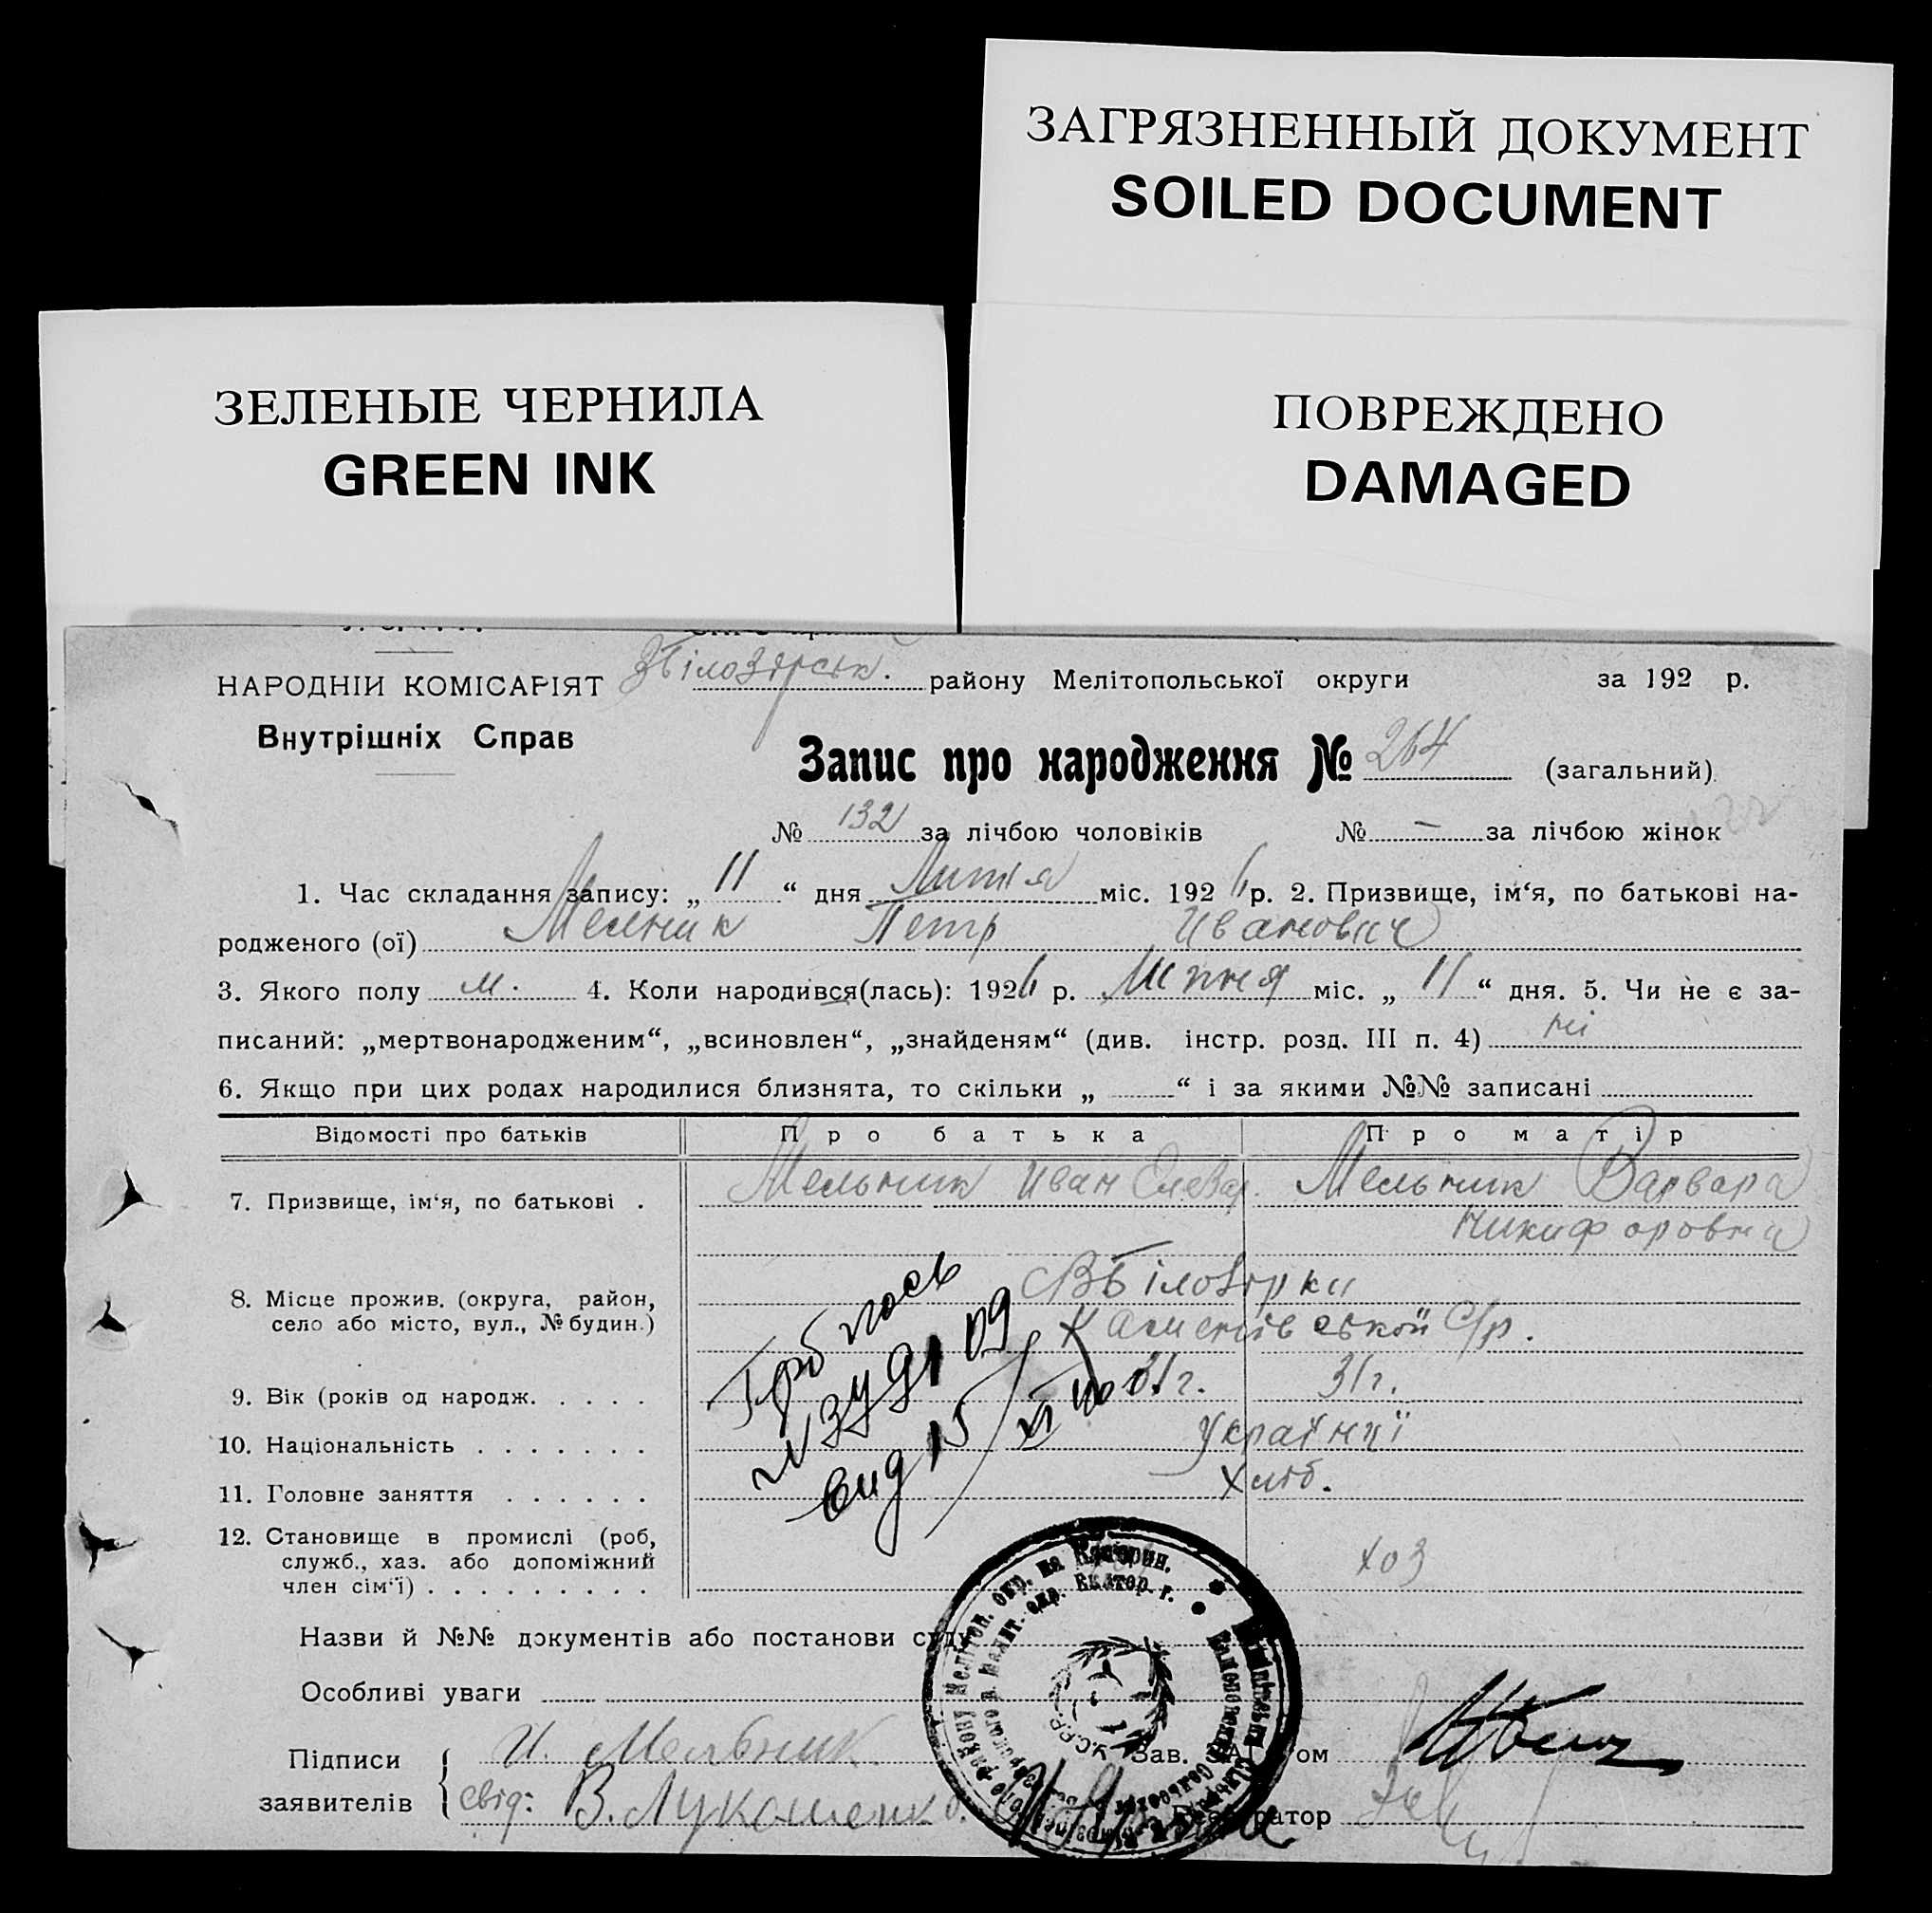 ЗАГРЯЗНЕННЫЙ ДОКУМЕНТ
SOILED DOCUMENT
ЗЕЛЕНЫЕ ЧЕРНИЛА
GREEN INK
ПОВРЕЖДЕНО
DAMAGED
НАРОДНІЙ КОМІСАРІЯТ
Внутрішніх Справ
району Мелітопольської округи за 192 р.
Запис про народження № 264 (загальний)
№ 132 за лічбою чоловіків № — за лічбою жінок
1. Час складання запису: „ 11 “ дня міс. 192 6 р. 2. Призвище, ім‘я, по батькові на-
родженого (ої) Мельник Петр Иванович
3. Якого полу м. 4. Коли народився(лась): 1926 р. міс. „ 11 “ дня. 5. Чи не є за-
писаний: „мертвонародженим“, „всиновлен“, „знайденям“ (див. інстр. розд. III п. 4) ні
6. Якщо при цих родах народилися близнята, то скільки „ “ і за якими №№ записані
Відомості про батьків Про батька Про матір
7. Призвище, ім‘я, по батькові . Мельник Иван Мельник Варвара
Никифоровна
8. Місце прожив. (округа, район,
село або місто, вул., № будин.)
9. Вік (років од народж. . . . . 31г. 31г.
10. Національність . . . . . . . Українці
11. Головне заняття . . . . . . Хліб.
12. Становище в промислі (роб,
служб., хаз. або допоміжний
член сім‘ї) . . . . . . . . .
Назви й №№ документів або постанови суду
Особливі уваги
Підписи И. Мельник Зав. ЗАГС‘ом
заявителів свід: В. Лукашенко. Реєстратор